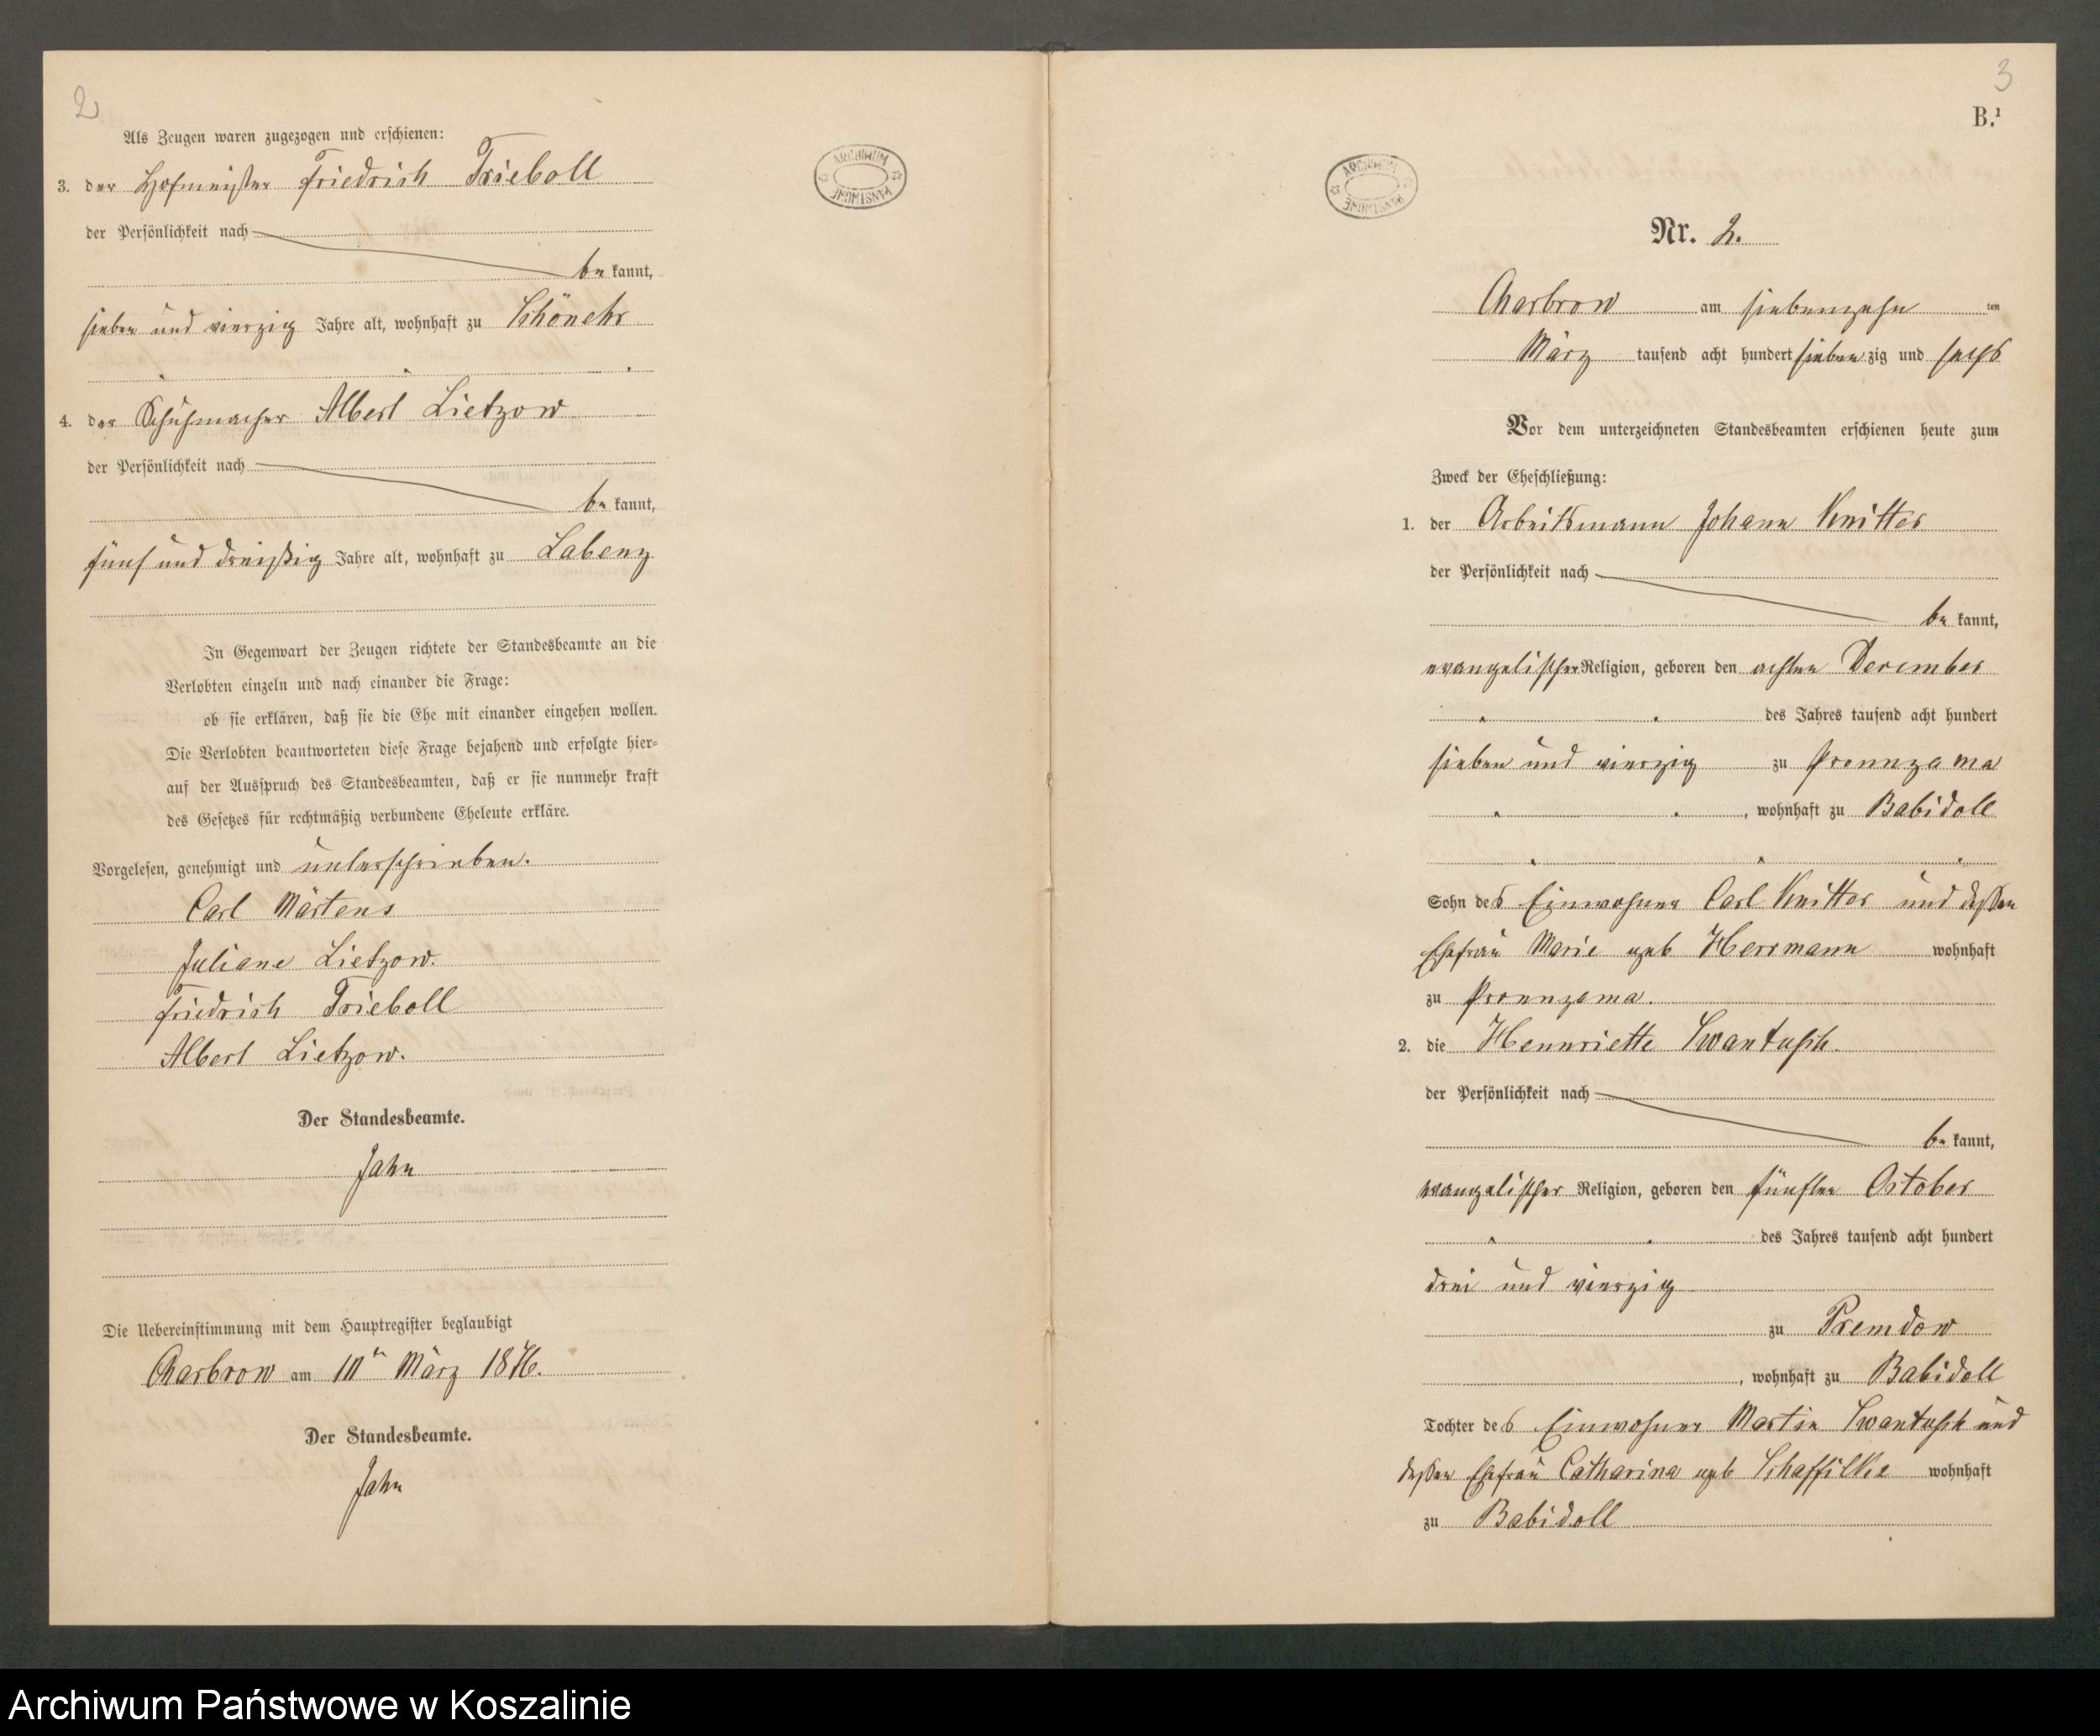 2
Als Zeugen waren zugezogen und erschienen:
3. der Hofmeister Friedrich Trieboll
der Persönlichkeit nach
be kannt,
sieben und vierzig Jahre alt, wohnhaft zu Schönehr
4. der Schuhmacher Albert Lietzow
der Persönlichkeit nach
be kannt,
fünf und dreißig Jahre alt, wohnhaft zu Labenz
In Gegenwart der Zeugen richtete der Standesbeamte an die
Verlobten einzeln und nach einander die Frage:
ob sie erklären, daß sie die Ehe mit einander eingehen wollen.
Die Verlobten beantworteten diese Frage bejahend und erfolgte hier-
auf der Ausspruch des Standesbeamten, daß er sie nunmehr kraft
des Gesetzes für rechtmäßig verbundene Eheleute erkläre.
Vorgelesen, genehmigt und unterschrieben.
Carl Märtens
Juliane Lietzow.
Friedrich Trieboll
Albert Lietzow.
Der Standesbeamte.
Jahn
Die Uebereinstimmung mit dem Hauptregister beglaubigt
Charbrow am März 1876.
Der Standesbeamte.
Jahn
ARCHIWUM PAŃSTWOWE
3
B.¹
ARCHIWUM PAŃSTWOWE
Nr. 2.
Charbrow am siebenzehn ten
März tausend acht hundert sieben zig und sechs
Vor dem unterzeichneten Standesbeamten erschienen heute zum
Zweck der Eheschließung:
1. der Arbeitsmann Johann Knitter
der Persönlichkeit nach
be kannt,
evangelischer Religion, geboren den achten December
des Jahres tausend acht hundert
sieben und vierzig zu Prennzama
, wohnhaft zu Babidoll
Sohn des Einwohner Carl Knitter und deßen
Ehefrau Marie geb Herrmann wohnhaft
zu Prennzama.
2. die Hennriette Swantusch.
der Persönlichkeit nach
be kannt,
evangelischer Religion, geboren den fünften October
des Jahres tausend acht hundert
drei und vierzig
zu Premdow
, wohnhaft zu Babidoll
Tochter des Einwohner Martin Swantusch und
deßen Ehefrau Catharina geb Schaffilke wohnhaft
zu Babidoll
Archiwum Państwowe w Koszalinie